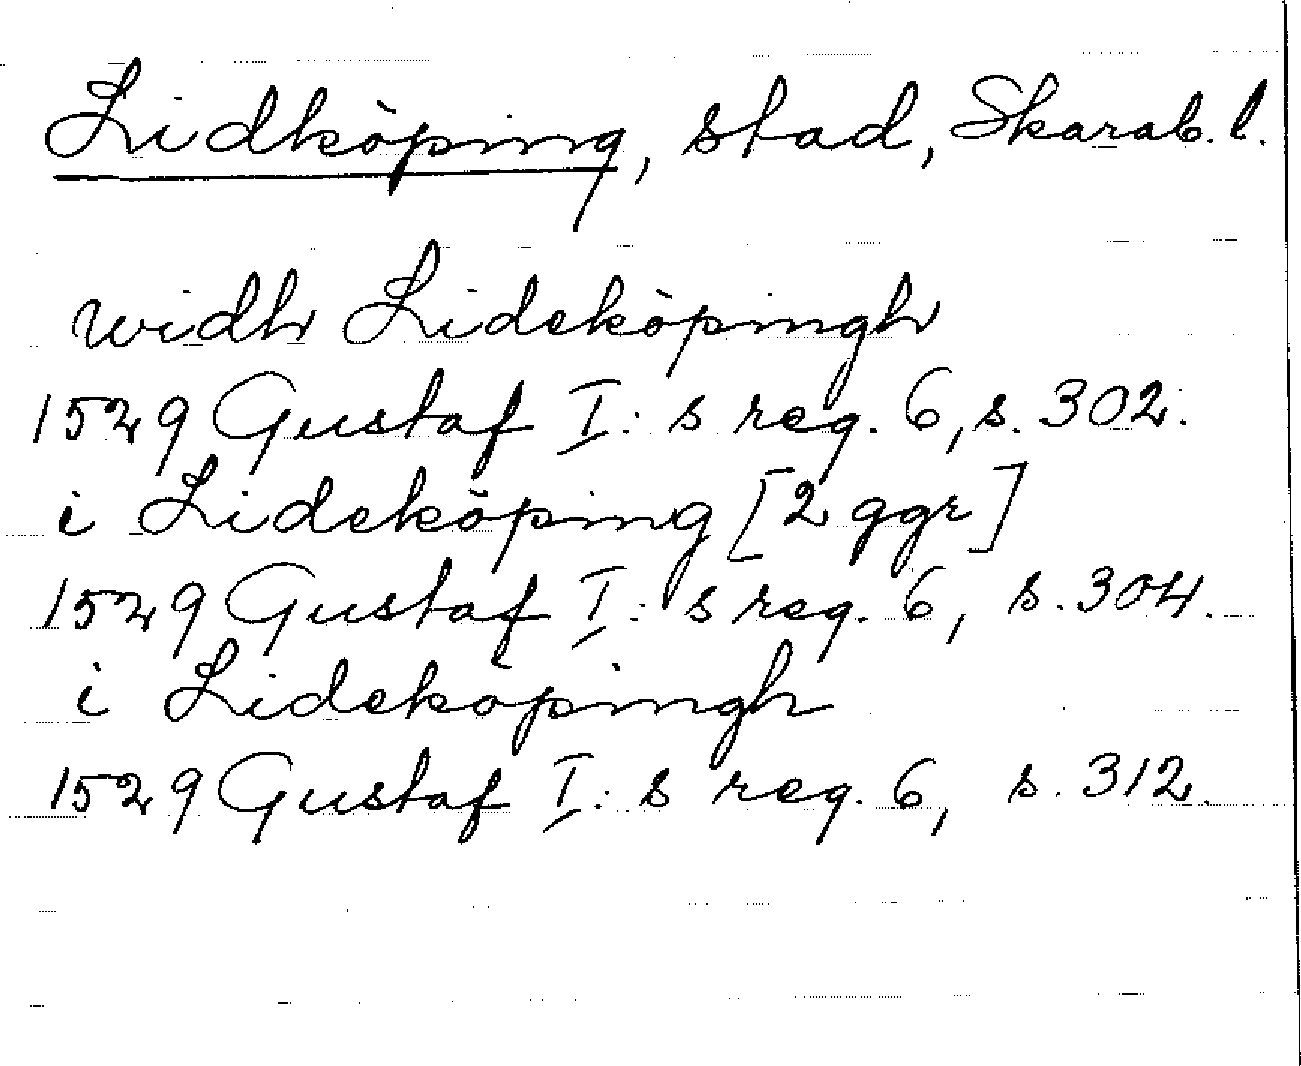 Lidköping, stad, Skarab. l.
widh Lideköpingh
1529 Gustaf I: s reg. 6, s. 302.
i Lideköping [2 ggr]
1529 Gustaf I: s reg. 6, s. 304.
i Lideköpingh
1529 Gustaf I: s reg. 6, s. 312.